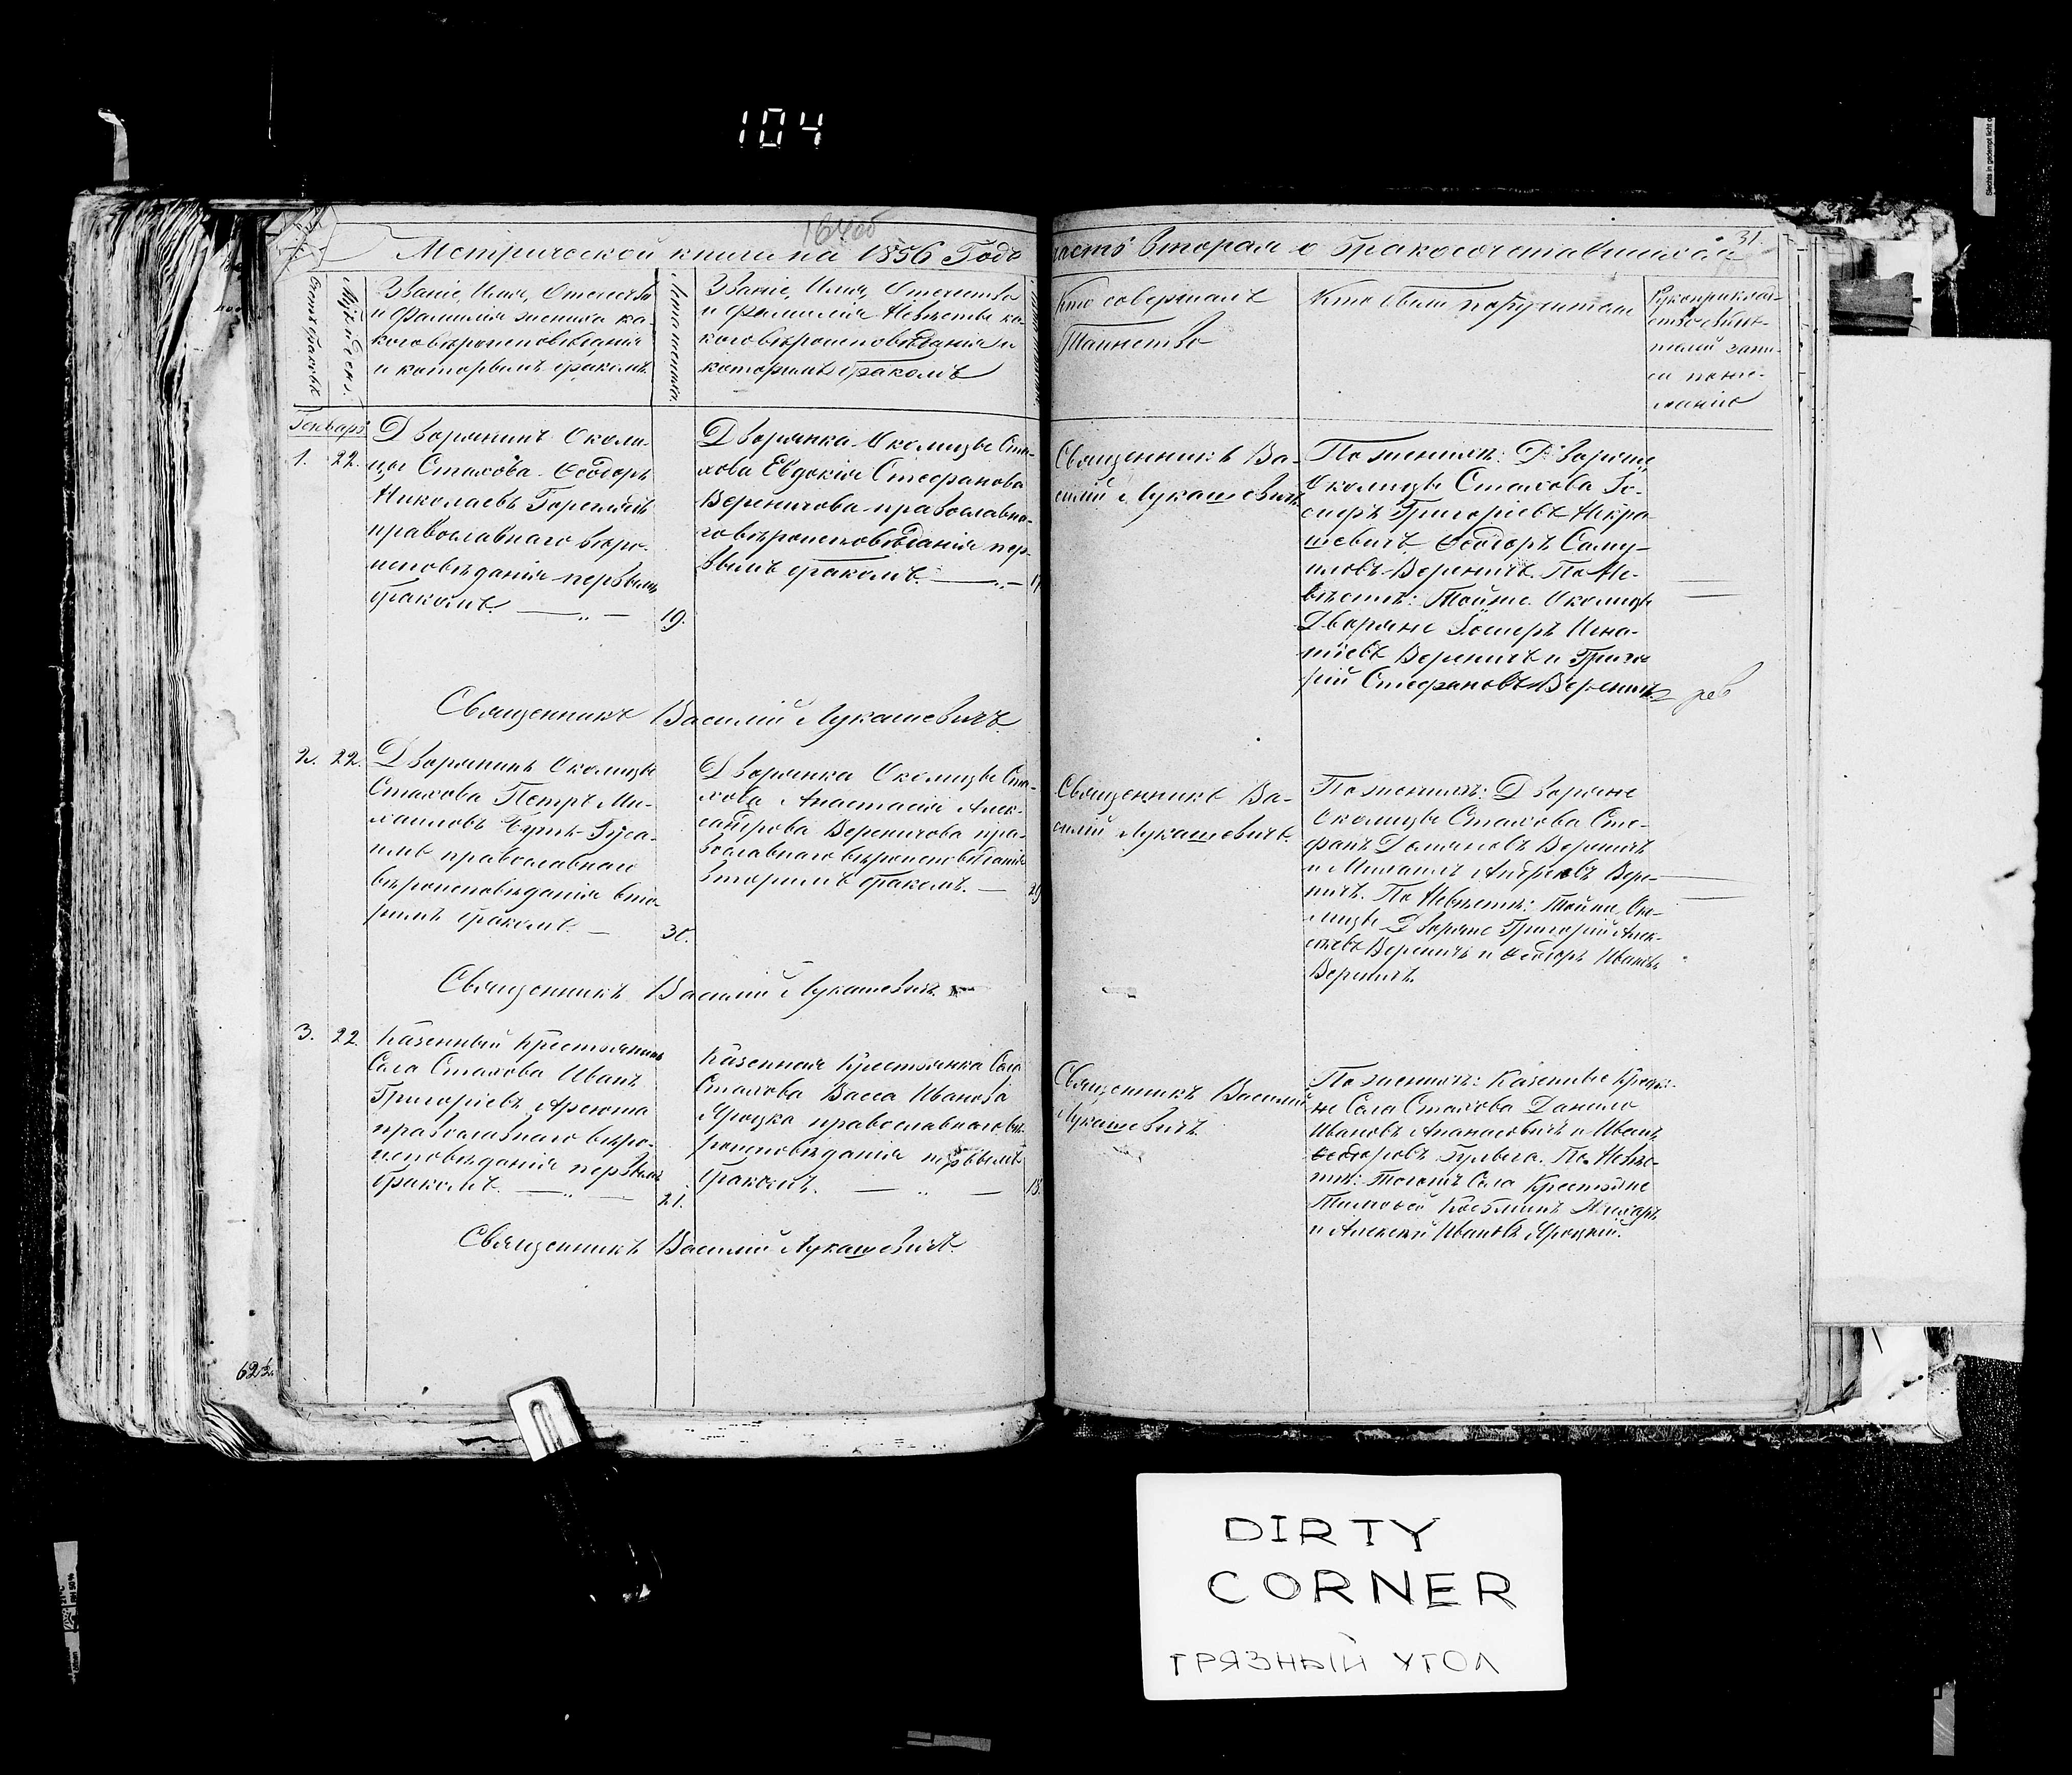 104
31.
Метрической книги на 1856 Годъ часть вторая о бракосочетавшихся
Счетъ браковъ.
Мѣсяцъ и день.
Званіе, Имя, Отечество
и Фамилія жениха ка-
коговѣроисповѣданія
и которымъ бракомъ.
Лета жениха.
Званіе, Имя, Отечество
и фамилія Невѣсты ка-
коговѣроисповѣданія и
которымъ бракомъ
Кто совершалъ
Таинство
Кто были поручители
Рукоприклад-
ство свидѣ-
телей запи-
си по же-
ланію
Январь
1. 22.
Дворянинъ Околи-
цы Стахова Ѳеодоръ
Николаевъ
православнаго вѣро-
исповѣданія первымъ
бракомъ.
19.
Дворянка Околицы Ста-
хова Евдокія Стефанова
Вереничова православна-
го вѣроисповѣданія пер-
вымъ бракомъ.
Священникъ Ва-
силій Лукашевичъ
По женихѣ: Дворяне
Околицы Стахова Іо-
сифъ Григоріевъ Некра-
шевичъ Ѳеодоръ Саму-
иловъ Вереничъ. По Не-
вѣстѣ: Тойже Околицы
Дворяне Іосифъ Игна-
тіевъ Вереничъ и Григо
рій Стефановъ Вереничъ
Священникъ Василій Лукашевичъ.
2. 22.
Дворянинъ Околицы
Стахова Петръ Ми-
хаиловъ
православнаго
вѣроисповѣданія вто-
рымъ бракомъ.
30.
Дворянка Околицы Ста-
хова Анастасія Алек-
сандрова Вереничова пра-
вославнаго вѣроисповѣданія
вторымъ бракомъ.
29
Священникъ Ва-
силій Лукашевичъ.
По женихѣ: Дворяне
Околицы Стахова Сте-
фанъ Вереничъ
и Михаилъ Андреевъ Вере-
ничъ. По Невѣстѣ: Тойже Око-
лицы Дворяне Григорій Алек-
сѣевъ Вереничъ и Ѳеодоръ Ивановъ
Вереничъ.
Священникъ Василій Лукашевичъ
3. 22.
Казенный Крестьянинъ
Села Стахова Иванъ
Григоріевъ Арсюта
православнаго вѣро-
исповѣданія первымъ
бракомъ.
21.
Казенная Крестьянка Села
Стахова Васса Иванова
Яроцка православнаго вѣ-
роисповѣданія первымъ
бракомъ.
18.
Священникъ Василій
Лукашевичъ.
По женихѣ: Казенные Крестья-
не Села Стахова Данило
Ивановъ Апанасовичъ и Иванъ
Ѳеодоровъ. По Невѣс-
тѣ: Тогожъ Села Крестьяне
Тимоѳей
и Алексѣй Ивановъ Яроцкій.
Священникъ Василій Лукашевичъ.
DIRTY
CORNER
ГРЯЗНЫЙ УГОЛ